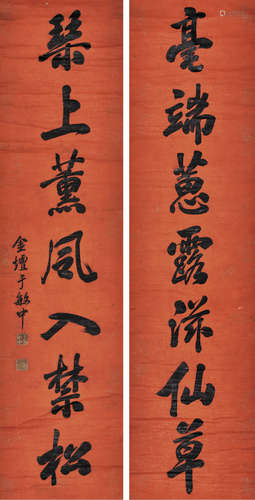 毫端蕙露滋仙草
琴上薰风入禁松
金坛于敏中